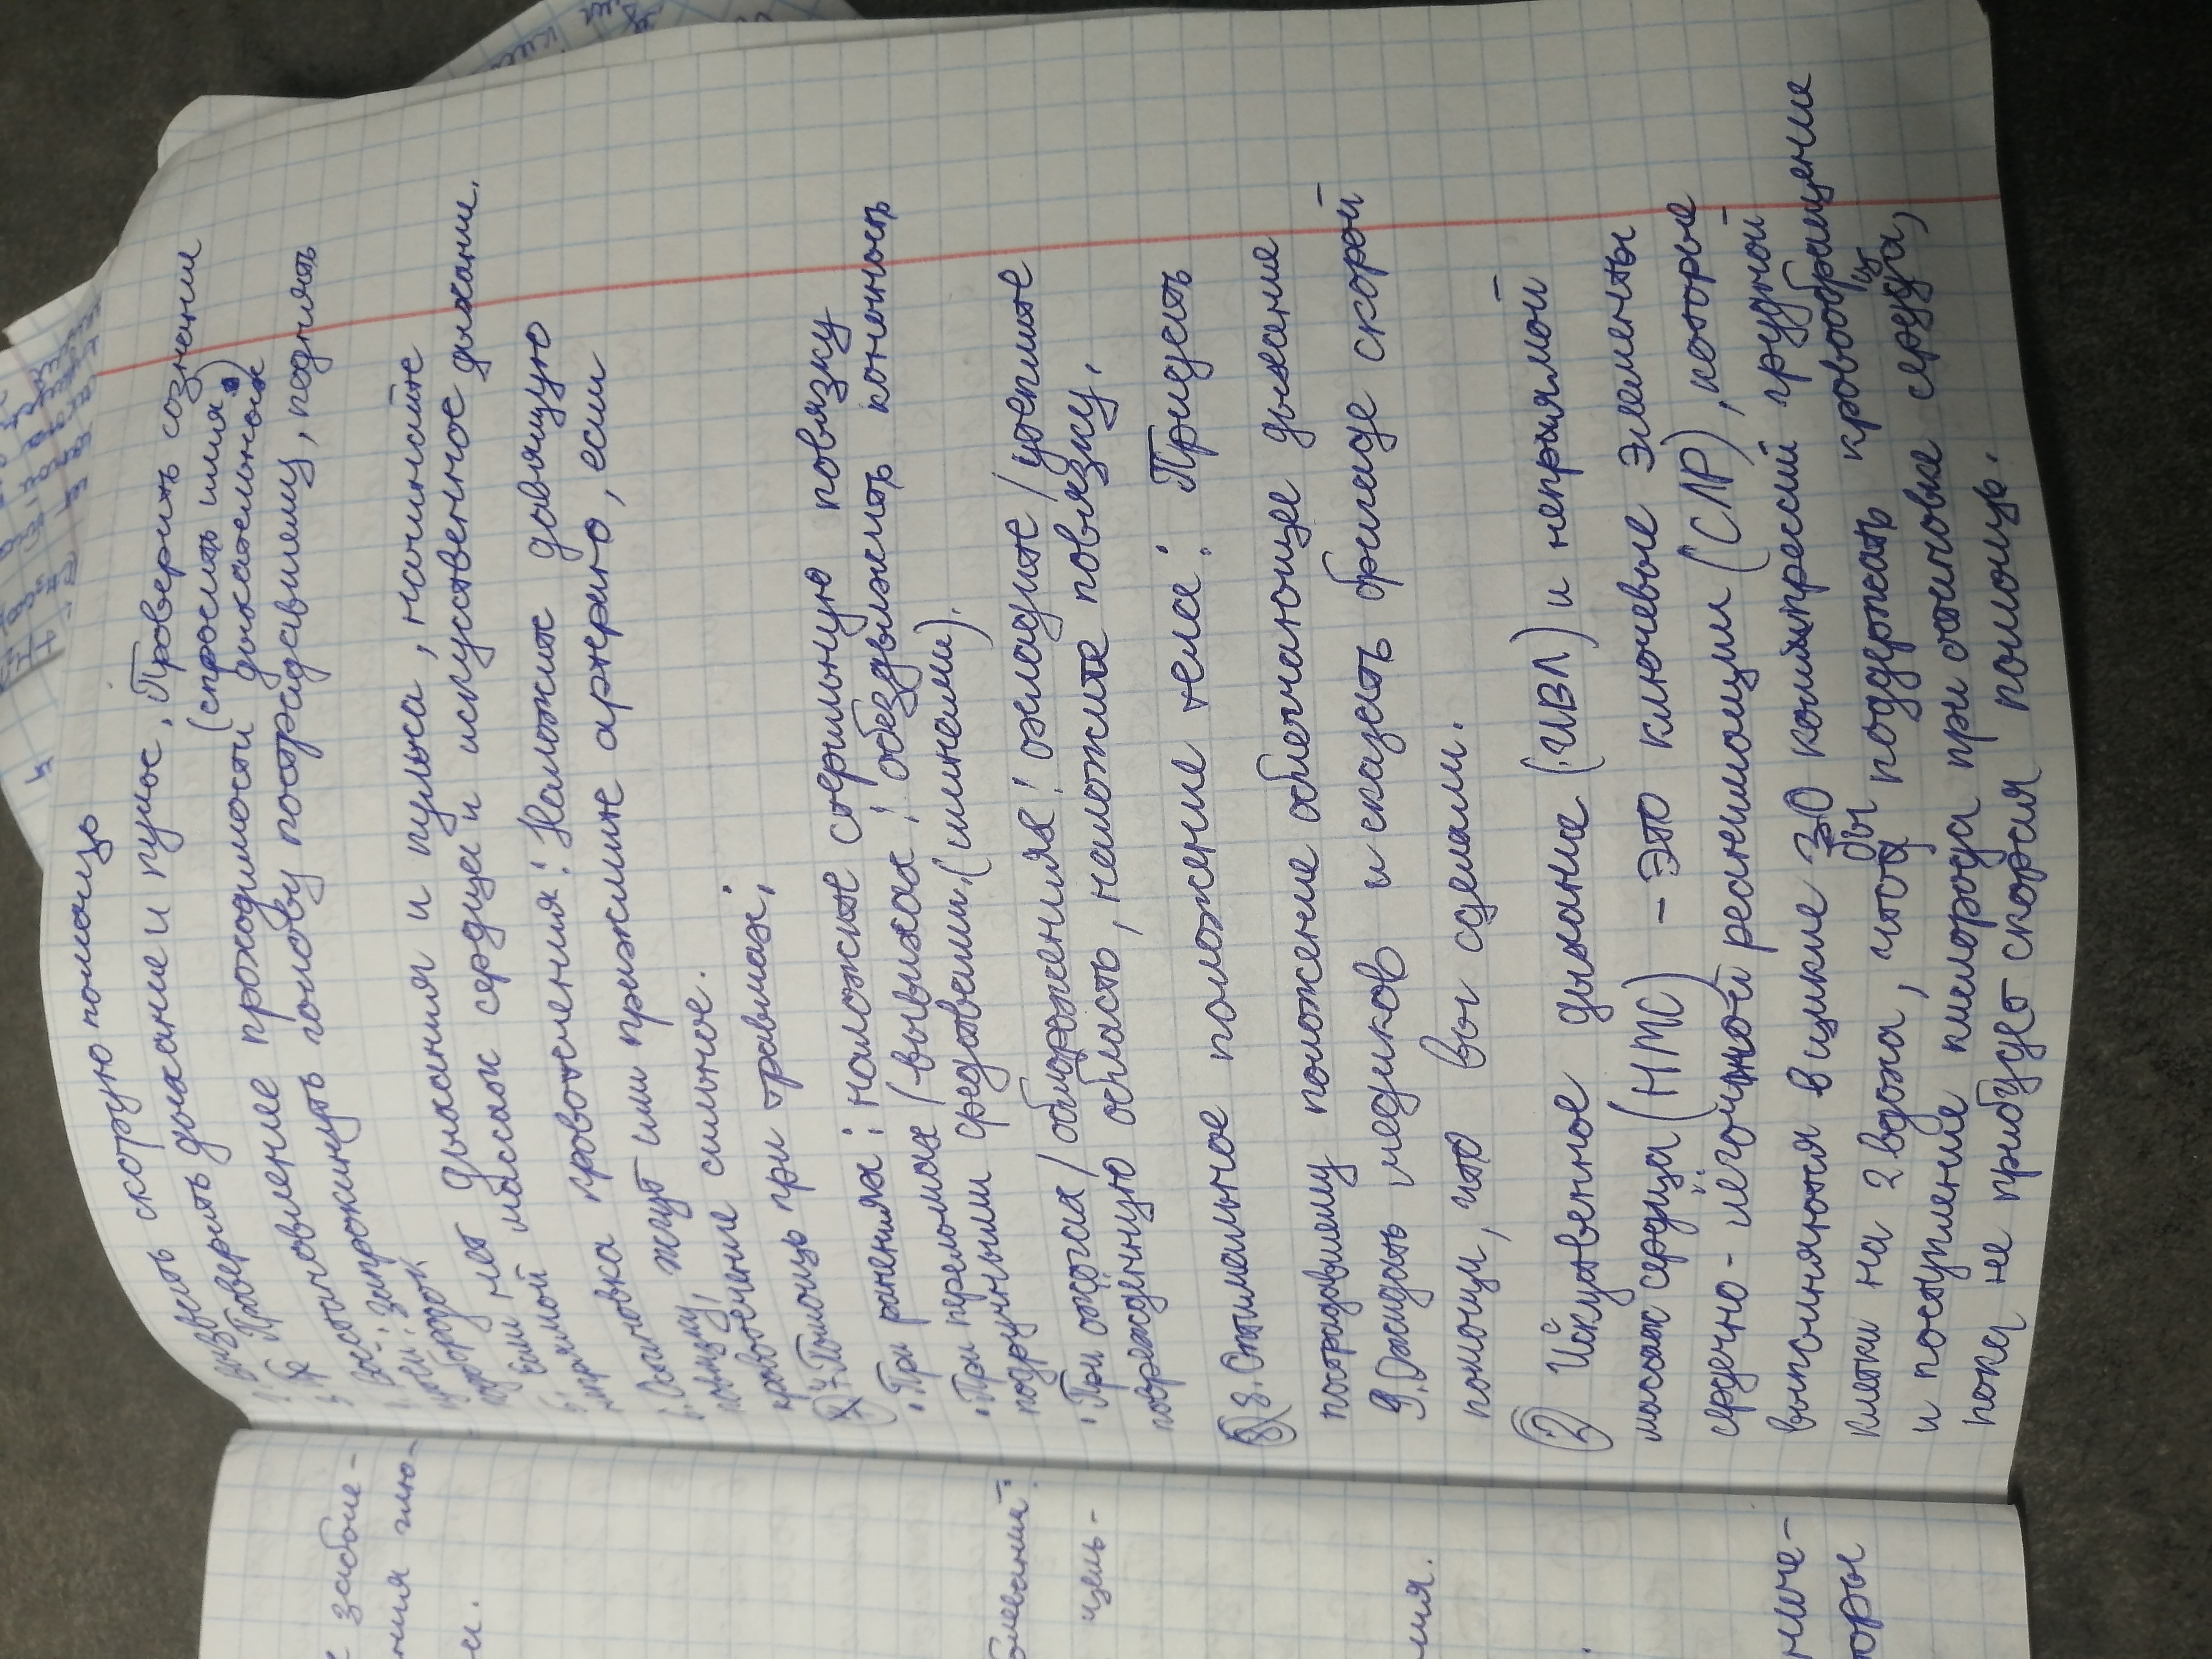 1. Вызвать скорую помощь
2. Проверить дыхание и пульс, Проверить сознании
(спросить имя)
3. Востановление проходимости дыхательных
путей: запрокинуть голову пострадавшему, поднять
подбородок
4. Если нет дыхания и пульса, начинайте
непрямой массаж сердца и искуственное дыхание.
5. Остановка кровотечения: Наложить давящую
повязку, жгут или прижмите артерию, если
кровотечение сильное.
7. Помощь при травмах:
• При ранениях: наложите стерильную повязку
• При переломах/вывихах: обездвижить конечность
подручными средствами. (шинами).
• При ожогах/обморожениях: охладите/утеплите
поврежденную область, наложите повязку.
8. Оптимальное положение тела: Придусть
пострадавшему положение облегчающее дыхание
9. Ожидать медиков и сказать бригаде скорой
помощи, что вы сделали.
2 Искуственное дыхание (ИВЛ) и непрямой
массаж сердца (НМС) – это ключевые элементы
сердечно-легочной реанимации (СЛР), которые
выполняются в цикле 30 компрессий грудной
клетки на 2 вдоха, чтобы поддержать кровообращение
и поступление кислорода при остановке сердца,
пока не прибудет скорая помощь.
заболе-
ния
болеваний:
цель-
ния.
торы